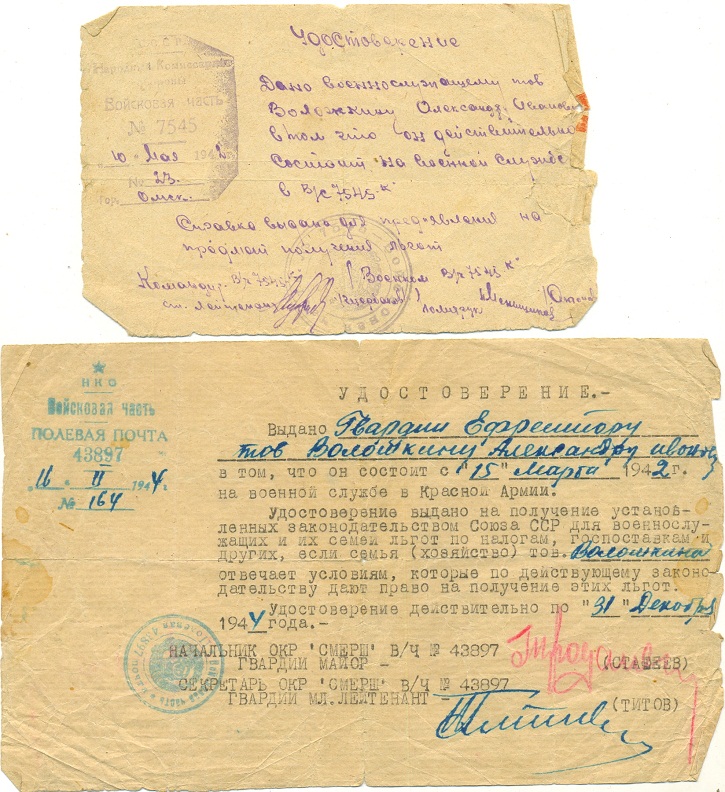 Удостоверение
СССР
Народный Комиссариат
обороны
Войсковая часть
№ 7545
"10" Мая 1942 г.
№ 23.
гор. Омск.
Дано военнослужащему тов
Александр Иванов
в том что он действительно
состоит на военной службе
в В/с 7545-"К"
Справка выдана для предъявления на
предмет получения льгот
Командир В/ч 7545-"К"
ст. лейтенант
Военком В/ч 7545 "К"
политрук
НКО
Войсковая часть
ПОЛЕВАЯ ПОЧТА
43897
"16" II 1944 г.
№ 164
УДОСТОВЕРЕНИЕ.-
Выдано Гвардии Ефрейтору
тов Волошкину Александру
в том, что он состоит с "15" Марта 1942 г.
на военной службе в Красной Армии.
Удостоверение выдано на получение установ-
ленных законодательством Союза ССР для военнослу-
жащих и их семей льгот по налогам, госпоставкам и
других, если семья (хозяйство) тов. Волошкина
отвечает условиям, которые по действующему законо-
дательству дают право на получение этих льгот.
Удостоверение действительно по "31" Декабря
1944 года.-
НАЧАЛЬНИК ОКР "СМЕРШ" В/Ч № 43897
ГВАРДИИ МАЙОР - (СТАШЕЕВ)
СЕКРЕТАРЬ ОКР "СМЕРШ" В/Ч № 43897
ГВАРДИИ МЛ.ЛЕЙТЕНАНТ - (ТИТОВ)